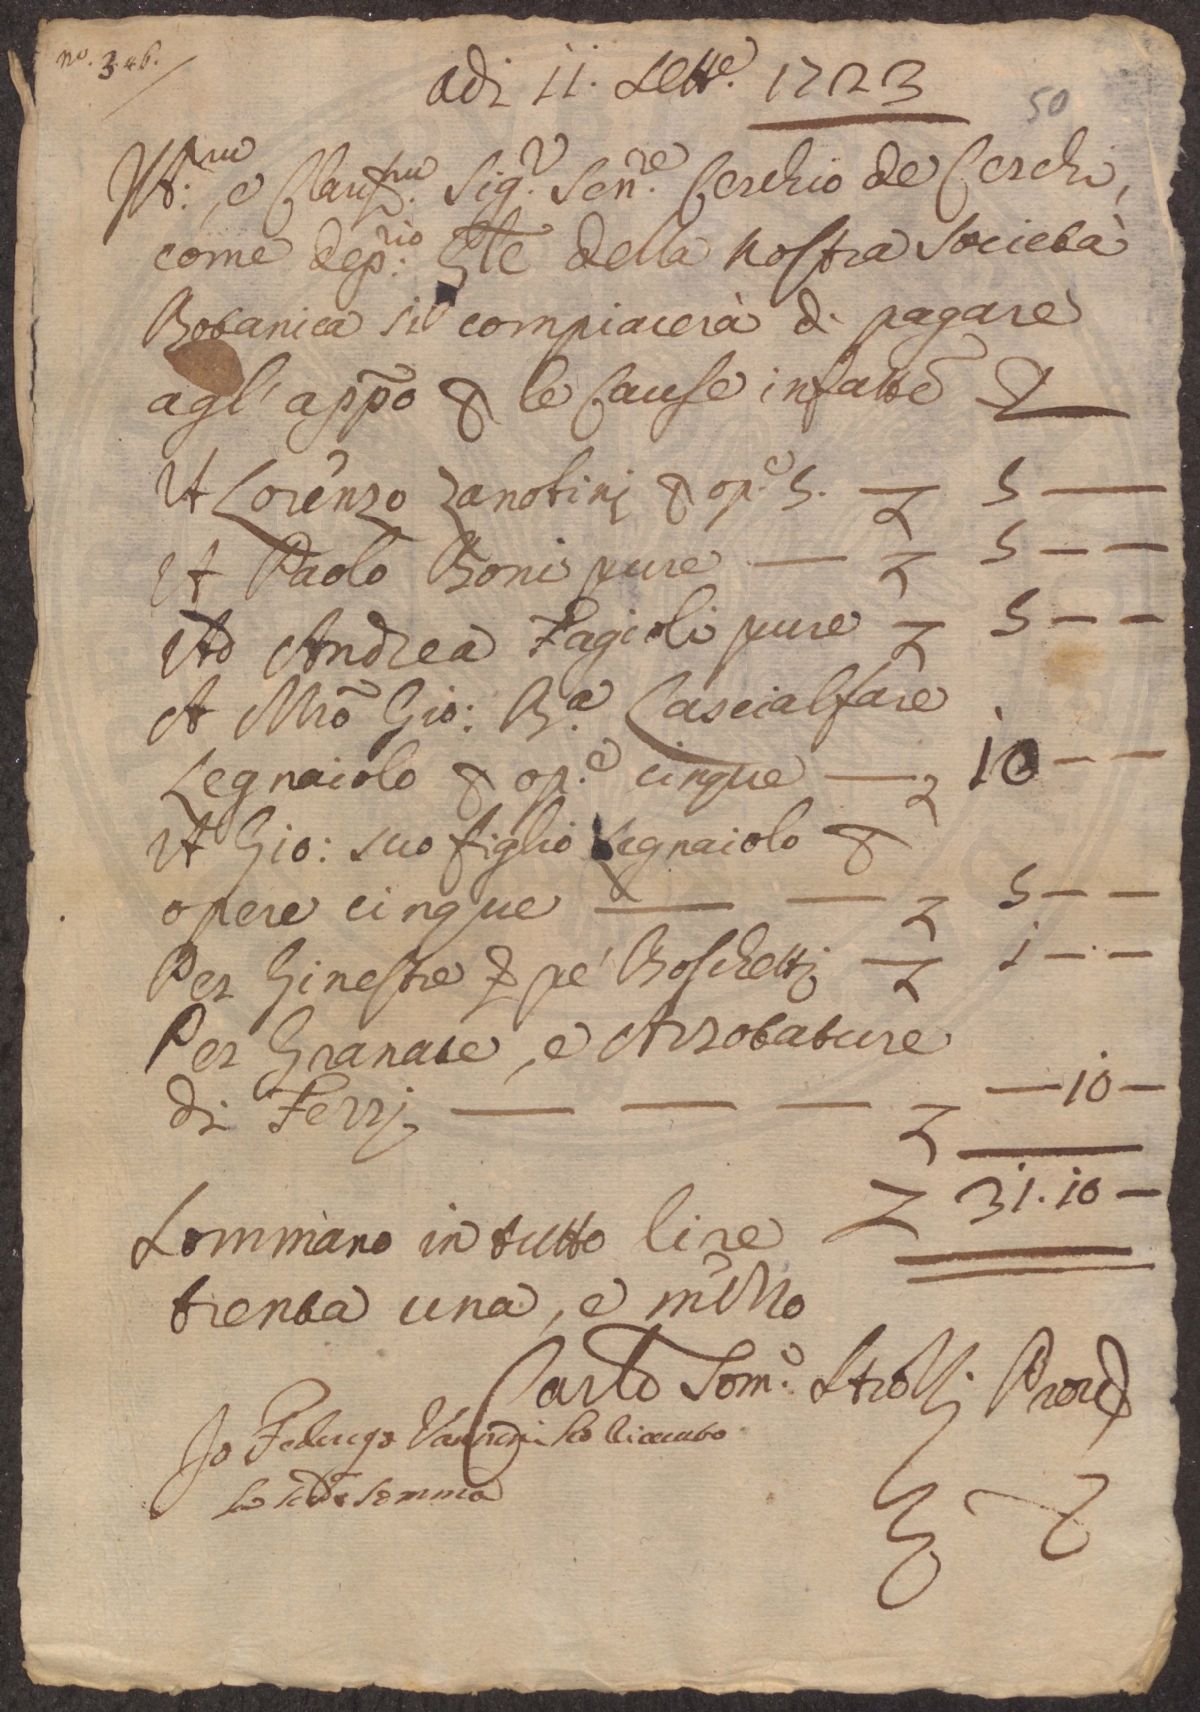 no. 346.
adi 11. Sette. 1723
50
Ill:mo, e Clariss:mo Sig.r Sen.re Cerchio de Cerchi,
come dep:rio Gle della nostra Società
Botanica si compiacerà di pagare
agl' app̃o p le Cause infatte £
A Lorenzo Zanobini p op.e 5. — £ 5 —
A Paolo Boni pure — £ 5 — —
Ad Andrea Fagioli pure £ 5 — —
A Mro Gio: B.a Cascialfare
Legnaiolo p op.e cinque — £ 10 — —
A Gio: suo figlio Legnaiolo p
opere cinque — — £ 5 — —
Per Ginestre p pe' Boschetti — £ 1 — —
Per Granate, e Arrotature
di Ferri — — — £ — 10 —
£ 31. 10 —
Sommano in tutto lire
trenta una, e mezzo
Carlo Tom.o Strozzi Provre
Io Federigo Vannini ho riceuto
la sudta somma